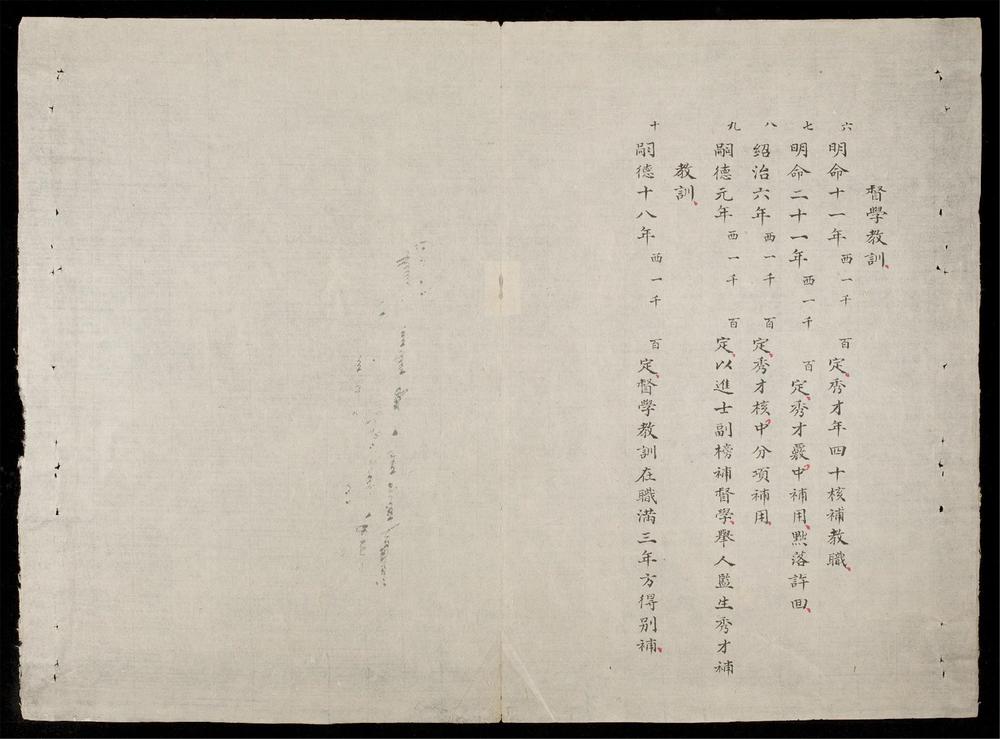 督學教訓、
六 明命十一年 西一千 百 定、秀才年四十核補教職、
七 明命二十一年 西一千 百 定、秀才覈中補用、黜落許回、
八 紹治六年 西一千 百 定、秀才核中分項補用、
九 嗣德元年 西一千 百 定、以進士副榜補督學、舉人監生秀才補
教訓、
十 嗣德十八年 西一千 百 定、督學教訓在職滿三年方得別補、